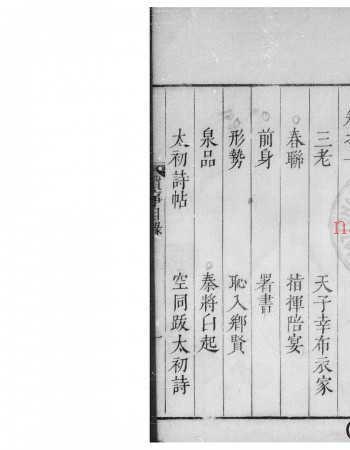 三老 天子幸布衣家
春聯 指揮陪宴
前身 署書
形勢 恥入鄉賢
泉品 秦將白起
太初詩帖 空同跋太初詩
目錄